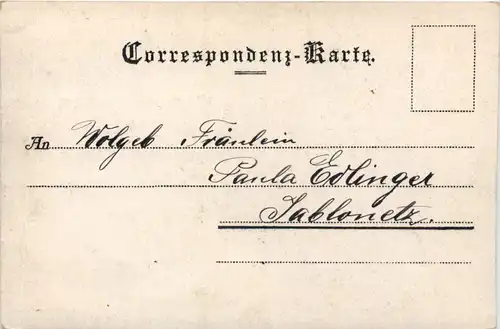 Correspondenz-Karte.
An Wolgeb Fräulein
Paula Edlinger
Jablonetz.